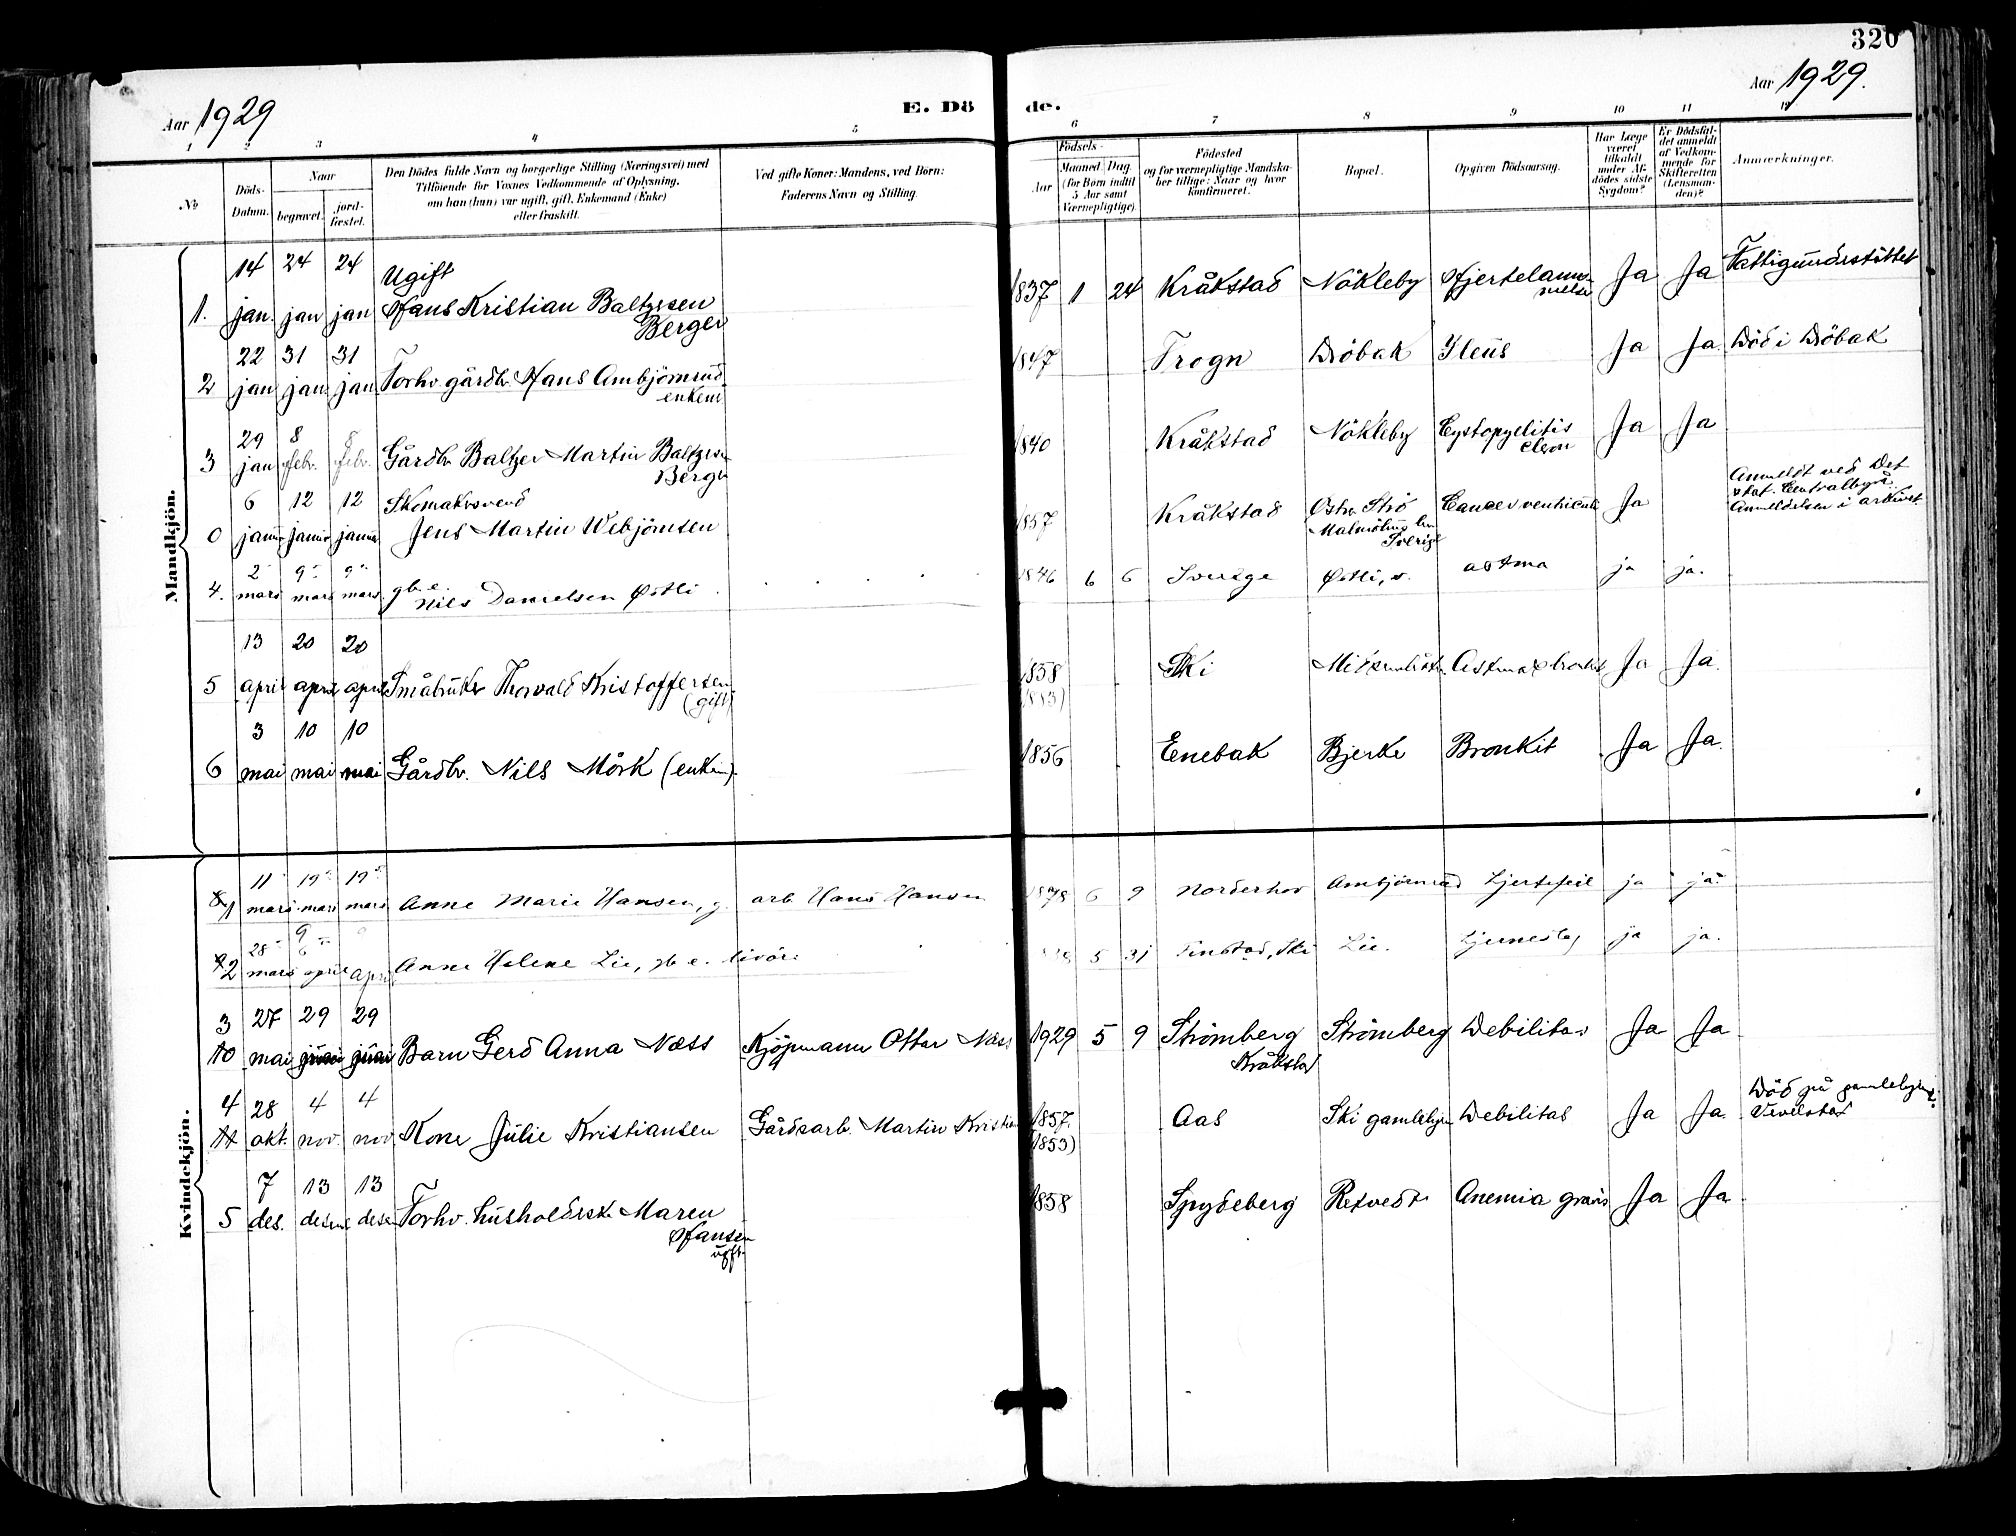 320
Aar 1929
E. Dö
de.
Aar 1929.
1 2 3 4 5 6 7 8 9 10 11 12
No
Döds-Datum.
Naar
begravet.
jord-fæstet.
Den Dödes fulde Navn og borgerlige Stilling (Næringsvei) med
Tilföiende for Voxnes Vedkommende af Oplysning,
om han (hun) var ugift, gift, Enkemand (Enke)
eller fraskilt.
Ved gifte Koner: Mandens, ved Börn:
Faderens Navn og Stilling.
Födsels-
Aar
Maaned Dag
(for Börn indtil
5 Aar samt
Værnepligtige).
Födested
og for værnepligtige Mandska-
ber tillige: Naar og hvor
konfirmeret.
Bopæl.
Opgiven Dödsaarsag.
Har Læge
været
tilkaldt
under Af-
dödes sidste
Sygdom?
Er Dödsfal-
det anmeldt
af Vedkom-
mende for
Skifteretten
(Lensman-
den)?
Anmærkninger.
Mandkjön.
1. 14 jan. 24 jan 24 jan Ugift
Hans Kristian Baltzersen
Berger
1837 1 24 Kråkstad Nökleby Hjertelam-
melse Ja Ja Fattigunderstöttet
2 22 jan 31 jan 31 jan Forhv. gårdbr. Hans Ambjörnrud
enkem
1847 Frogn Dröbak Ileus Ja Ja Död i Dröbak
3 29 jan 8 febr. 8 febr. Gårdbr. Baltzer Martin Baltzersen
Berger
1840 Kråkstad Nökleby Cystopyelitis
Ja Ja
0 6 januar 12 januar 12 januar Skomakersvend
Jens Martin Webjörnsen
1857 Kråkstad Östra Strö
Malmöhus len
Sverige
Cancer ventriculi Ja
Anmeldt ved Det
stat. Centralbyrå.
Anmeldelsen i arkivet.
4. 2 mars 9 mars 9 mars gbr. e.
Nils Danielsen Østli
1846 6 6 Sverige Østli, astma ja ja.
5 13 april 20 april 20 april Småbruker Thorvald Kristoffersen
(gift)
1858
(1883) Ski Astma bronkit Ja Ja.
6 3 mai 10 mai 10 mai Gårdbr. Nils Mörk (enkem).
1856 Enebak Bjerke Bronkit Ja Ja.
Kvindekjön.
1 11 mars 19 mars 19 mars Anne Marie Hansen, g. arb. Hans Hansen
1878 6 9 Norderhov Ambjörnrud hjertefeil ja ja
2 28 mars 9 april april Anne Helene Lie, gb e. livöre
5 31 Finstad, Ski Lie. ja ja.
3 10 27 mai 29 29 Barn Gerd Anna Næss Kjöpmann Ottar Næss
1929 5 9 Strömberg
Kråkstad Strömberg Debilitas Ja Ja
4 11 28 okt. 4 nov. 4 nov Kone Julie Kristiansen Gårdsarb. Martin Kristian
1857.
(1853) Aas Ski gamlehjem Debilitas Ja Ja. Död på gamlehjem
Vevelstad
5 7 des. 13 desem 13 desem Forhv. husholderske Maren
Hansen
ugift
1858 Spydeberg Retvedt Anemia gravis Ja Ja